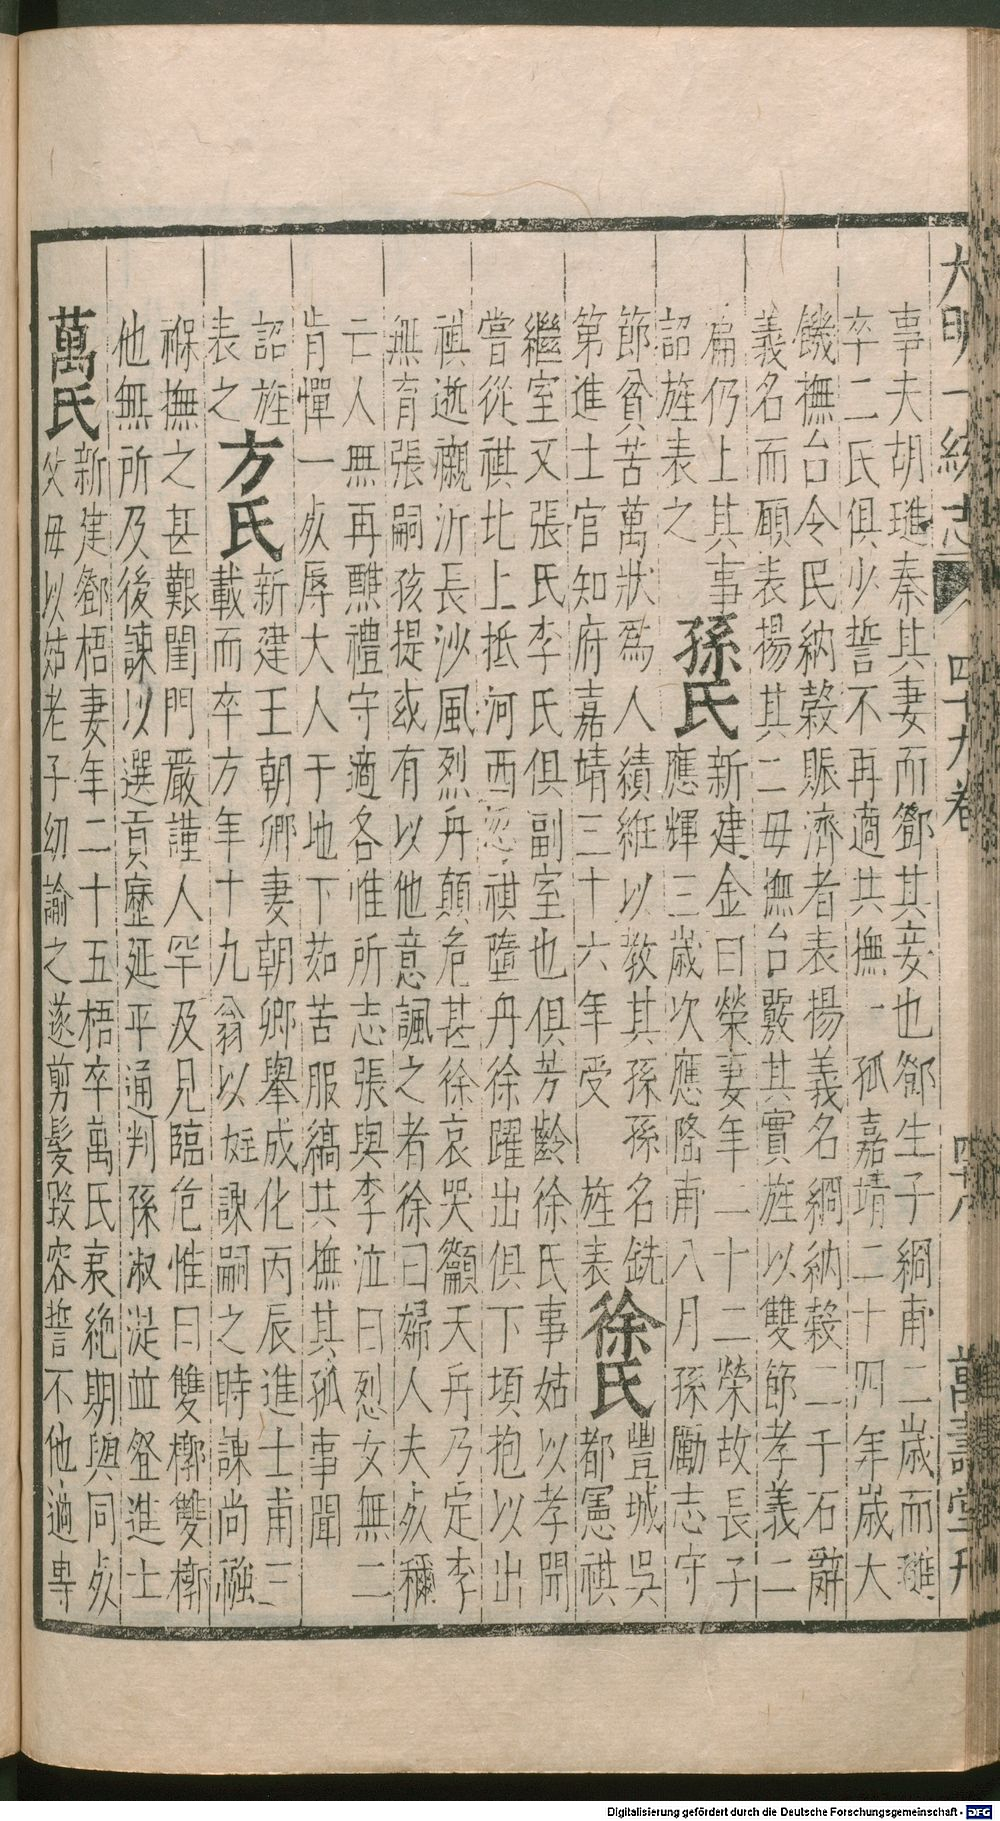 大明一統志 四十九卷 四十八 萬壽堂刊
事夫胡璡秦其妻而鄧其妾也鄧生子綱甫二歲而璡
卒二氏俱少誓不再適共撫一孤嘉靖二十四年歲大
饑撫台令民納榖賑濟者表揚義名綱納榖二千石辭
義名而願表揚其二毋撫台覈其實旌以雙節孝義二
扁仍上其事
詔旌表之
孫氏
新建金曰榮妻年二十二榮故長子
應輝三歲次應隆甫八月孫勵志守
節貧苦萬狀爲人績絍以教其孫孫名銑
第進士官知府嘉靖三十六年受 旌表
徐氏
豐城吳
都憲祺
繼室又張氏李氏俱副室也俱芳齡徐氏事姑以孝聞
嘗從祺北上抵河西忽祺墮舟徐躍出俱下項抱以出
祺逝櫬沂長沙風烈舟顛危甚徐哀哭籲天舟乃定李
無育張嗣孩提或有以他意諷之者徐曰婦人夫歿稱
亡人無再醮禮守適各惟所志張與李泣曰烈女無二
肯憚一死辱大人于地下茹苦服縞共撫其孤事聞
詔旌
表之
方氏
新建王朝卿妻朝卿舉成化丙辰進士甫三
載而卒方年十九翁以姪諫嗣之時諫尚襁
褓撫之甚艱閨門嚴謹人罕及見臨危惟曰雙槨雙槨
他無所及後諫以選貢歷延平通判孫淑並登進士
萬氏
新建鄧梧妻年二十五梧卒萬氏哀絶期與同死
父毋以姑老子幼諭之遂剪髮毀容誓不他適專
Digitalisierung gefördert durch die Deutsche Forschungsgemeinschaft - DFG